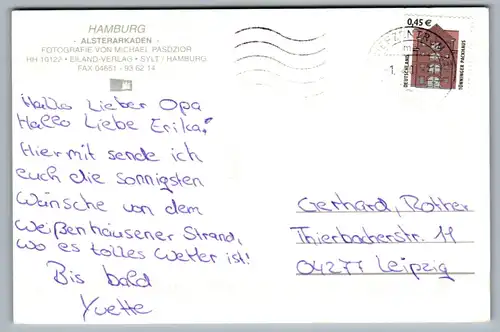 HAMBURG
- ALSTERARKADEN -
FOTOGRAFIE VON MICHAEL PASDZIOR
HH 19122 · EILAND-VERLAG · SYLT / HAMBURG
FAX 04651 - 93 62 14
0,45 €
DEUTSCHLAND
TÖNNINGER PACKHAUS
Hallo Lieber Opa
Hallo Liebe Erika!
Hiermit sende ich
euch die sonnigsten
Wünsche von dem
Weißenhäusener Strand,
wo es tolles Wetter ist!
Bis bald
Yvette
Gerhard, Rother
Thierbacherstr. 11
04277 Leipzig